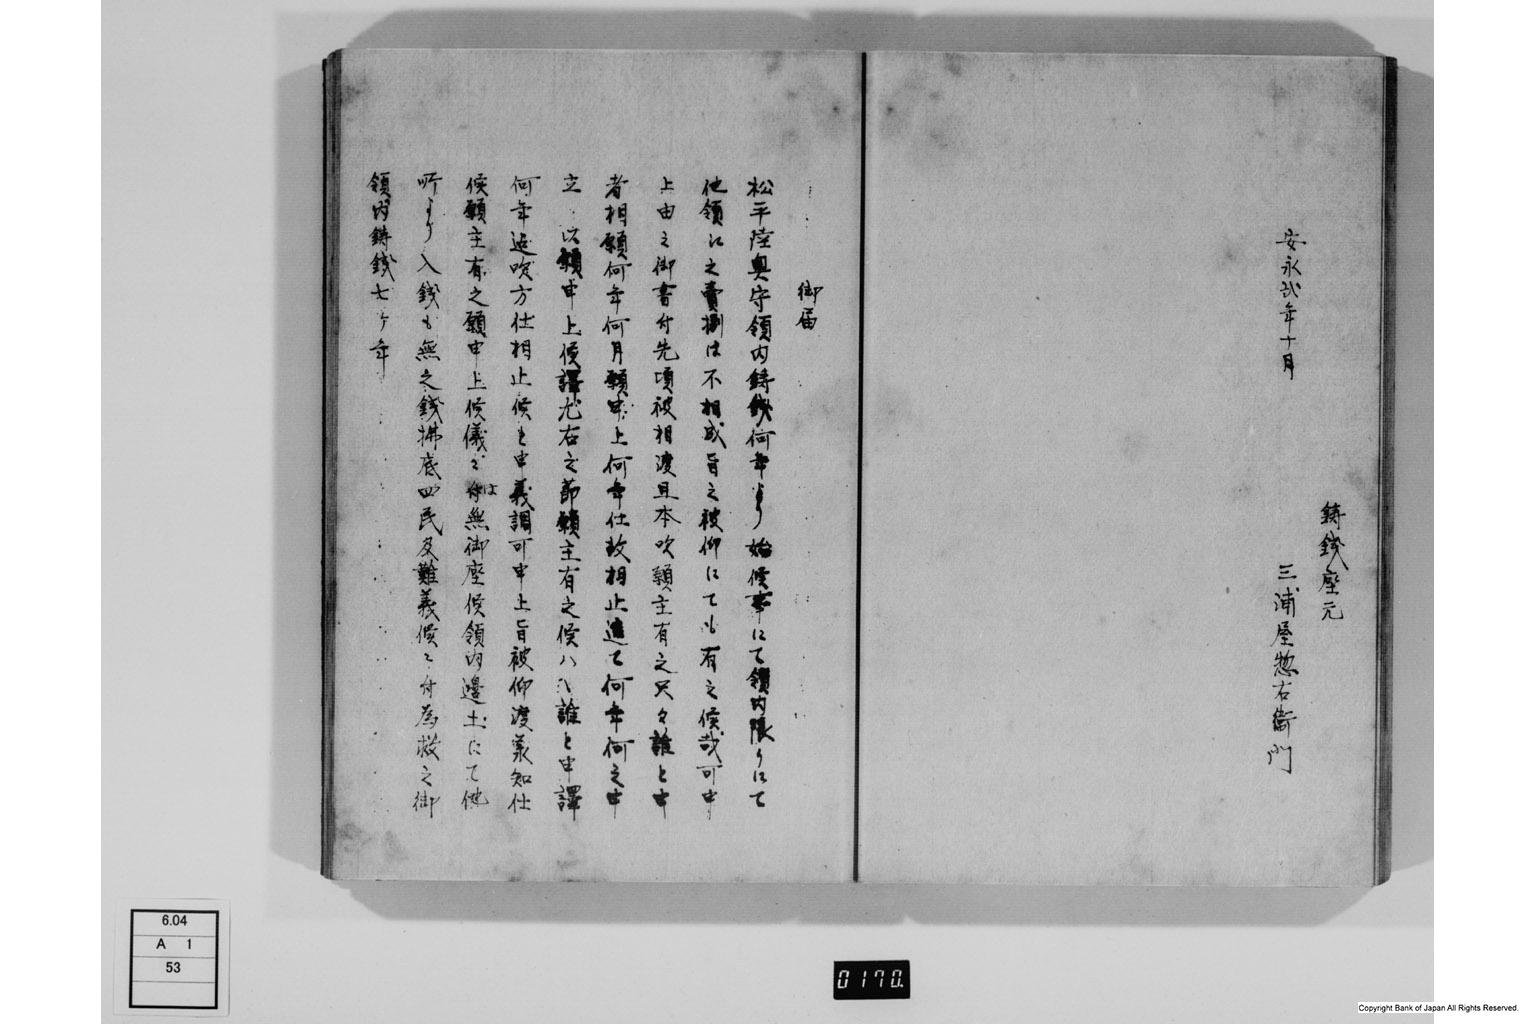 鋳銭座元
三浦屋惣右衛門
安永弐年十月
御届
松平陸奥守領内鋳銭何年より始候事にて領内限りにて
他領江之賣捌は不相成旨之被仰にても有之候哉可申
上由之御書付先頃被相渡且本吹願主有之只々誰と申
者相願何年何月願申上何年仕故相止進て何年何之申
立以願申上候譯尤右之節願主有之候ハヽ誰と申譯
何年迠吹方仕相止候と申義調可申上旨被仰渡承知仕
候願主有之願申上候儀ニ付は無御座候領内邊土にて他
所より入銭も無之銭拂底四民及難義候ニ付為救之御
領内鋳銭七ヶ年
6.04
A 1
53
0170.
Copyright Bank of Japan All Rights Reserved.